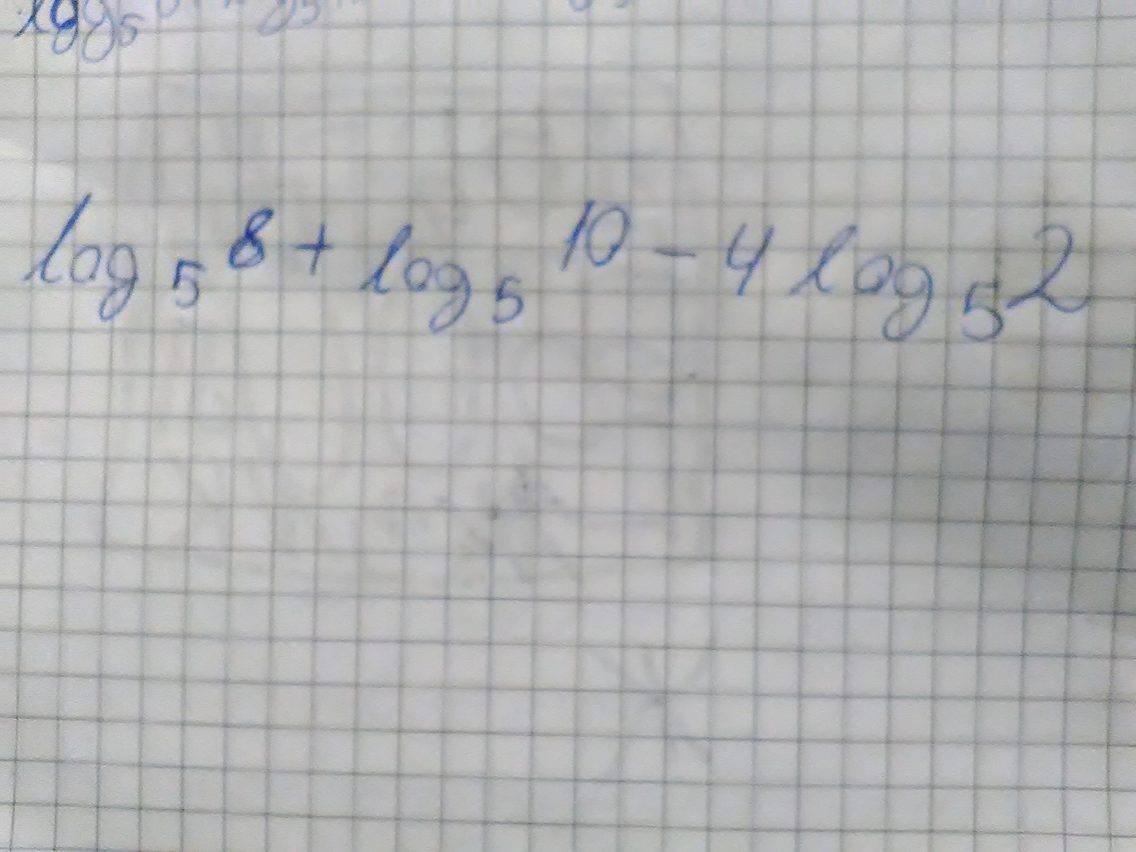 log₅ 8 + log₅ 10 - 4 log₅ 2